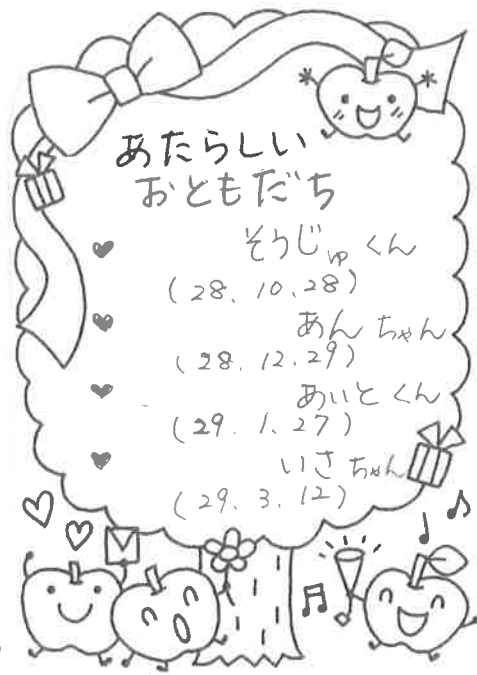 あたらしい
おともだち
♥ そうじゅくん
(28.10.28)
♥ あんちゃん
(28.12.29)
♥ あいとくん
(29.1.27)
♥ いさちゃん
(29.3.12)